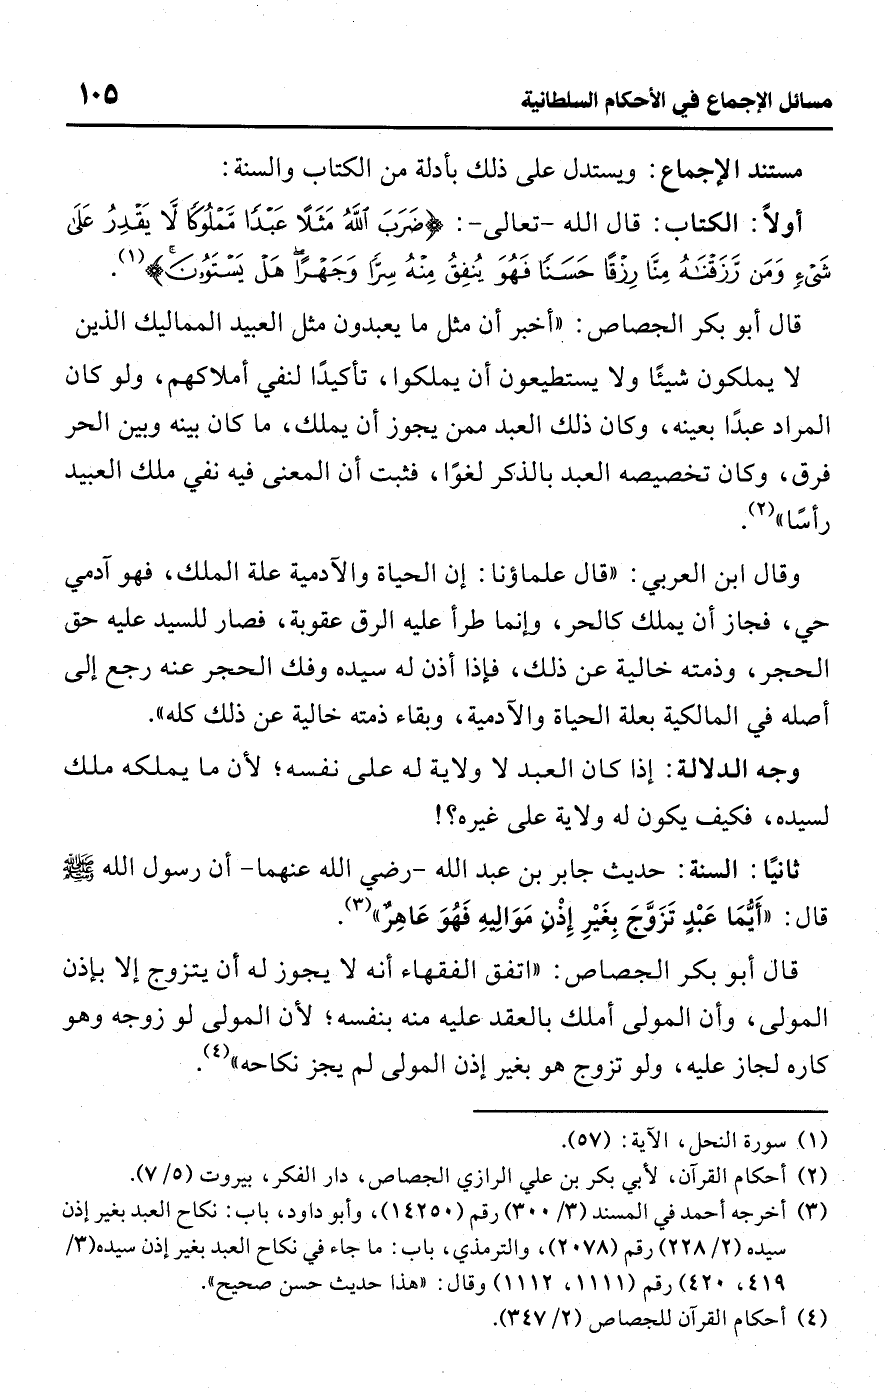 مسائل الإجماع في الأحكام السلطانية ١٠٥
مستند الإجماع: ويستدل على ذلك بأدلة من الكتاب والسنة:
أولاً: الكتاب: قال الله -تعالى-: ﴿ضَرَبَ ٱللَّهُ مَثَلًا عَبْدًا مَّمْلُوكًا لَّا يَقْدِرُ عَلَىٰ
شَىْءٍ وَمَن رَّزَقْنَٰهُ مِنَّا رِزْقًا حَسَنًا فَهُوَ يُنفِقُ مِنْهُ سِرًّا وَجَهْرًا ۖ هَلْ يَسْتَوُۥنَ ۚ﴾(١).
قال أبو بكر الجصاص: «أخبر أن مثل ما يعبدون مثل العبيد المماليك الذين
لا يملكون شيئًا ولا يستطيعون أن يملكوا، تأكيدًا لنفي أملاكهم، ولو كان
المراد عبدًا بعينه، وكان ذلك العبد ممن يجوز أن يملك، ما كان بينه وبين الحر
فرق، وكان تخصيصه العبد بالذكر لغوًا، فثبت أن المعنى فيه نفي ملك العبيد
رأسًا»(٢).
وقال ابن العربي: «قال علماؤنا: إن الحياة والآدمية علة الملك، فهو آدمي
حي، فجاز أن يملك كالحر، وإنما طرأ عليه الرق عقوبة، فصار للسيد عليه حق
الحجر، وذمته خالية عن ذلك، فإذا أذن له سيده وفك الحجر عنه رجع إلى
أصله في المالكية بعلة الحياة والآدمية، وبقاء ذمته خالية عن ذلك كله».
وجه الدلالة: إذا كان العبد لا ولاية له على نفسه؛ لأن ما يملكه ملك
لسيده، فكيف يكون له ولاية على غيره؟!
ثانيًا: السنة: حديث جابر بن عبد الله -رضي الله عنهما- أن رسول الله ﷺ
قال: «أَيُّمَا عَبْدٍ تَزَوَّجَ بِغَيْرِ إِذْنِ مَوَالِيهِ فَهُوَ عَاهِرٌ»(٣).
قال أبو بكر الجصاص: «اتفق الفقهاء أنه لا يجوز له أن يتزوج إلا بإذن
المولى، وأن المولى أملك بالعقد عليه منه بنفسه؛ لأن المولى لو زوجه وهو
كاره لجاز عليه، ولو تزوج هو بغير إذن المولى لم يجز نكاحه»(٤).
(١) سورة النحل، الآية: (٥٧).
(٢) أحكام القرآن، لأبي بكر بن علي الرازي الجصاص، دار الفكر، بيروت (٥/ ٧).
(٣) أخرجه أحمد في المسند (٣/ ٣٠٠) رقم (١٤٢٥٠)، وأبو داود، باب: نكاح العبد بغير إذن
سيده (٢/ ٢٢٨) رقم (٢٠٧٨)، والترمذي، باب: ما جاء في نكاح العبد بغير إذن سيده(٣/
٤١٩، ٤٢٠) رقم (١١١١، ١١١٢) وقال: «هذا حديث حسن صحيح».
(٤) أحكام القرآن للجصاص (٢/ ٣٤٧).